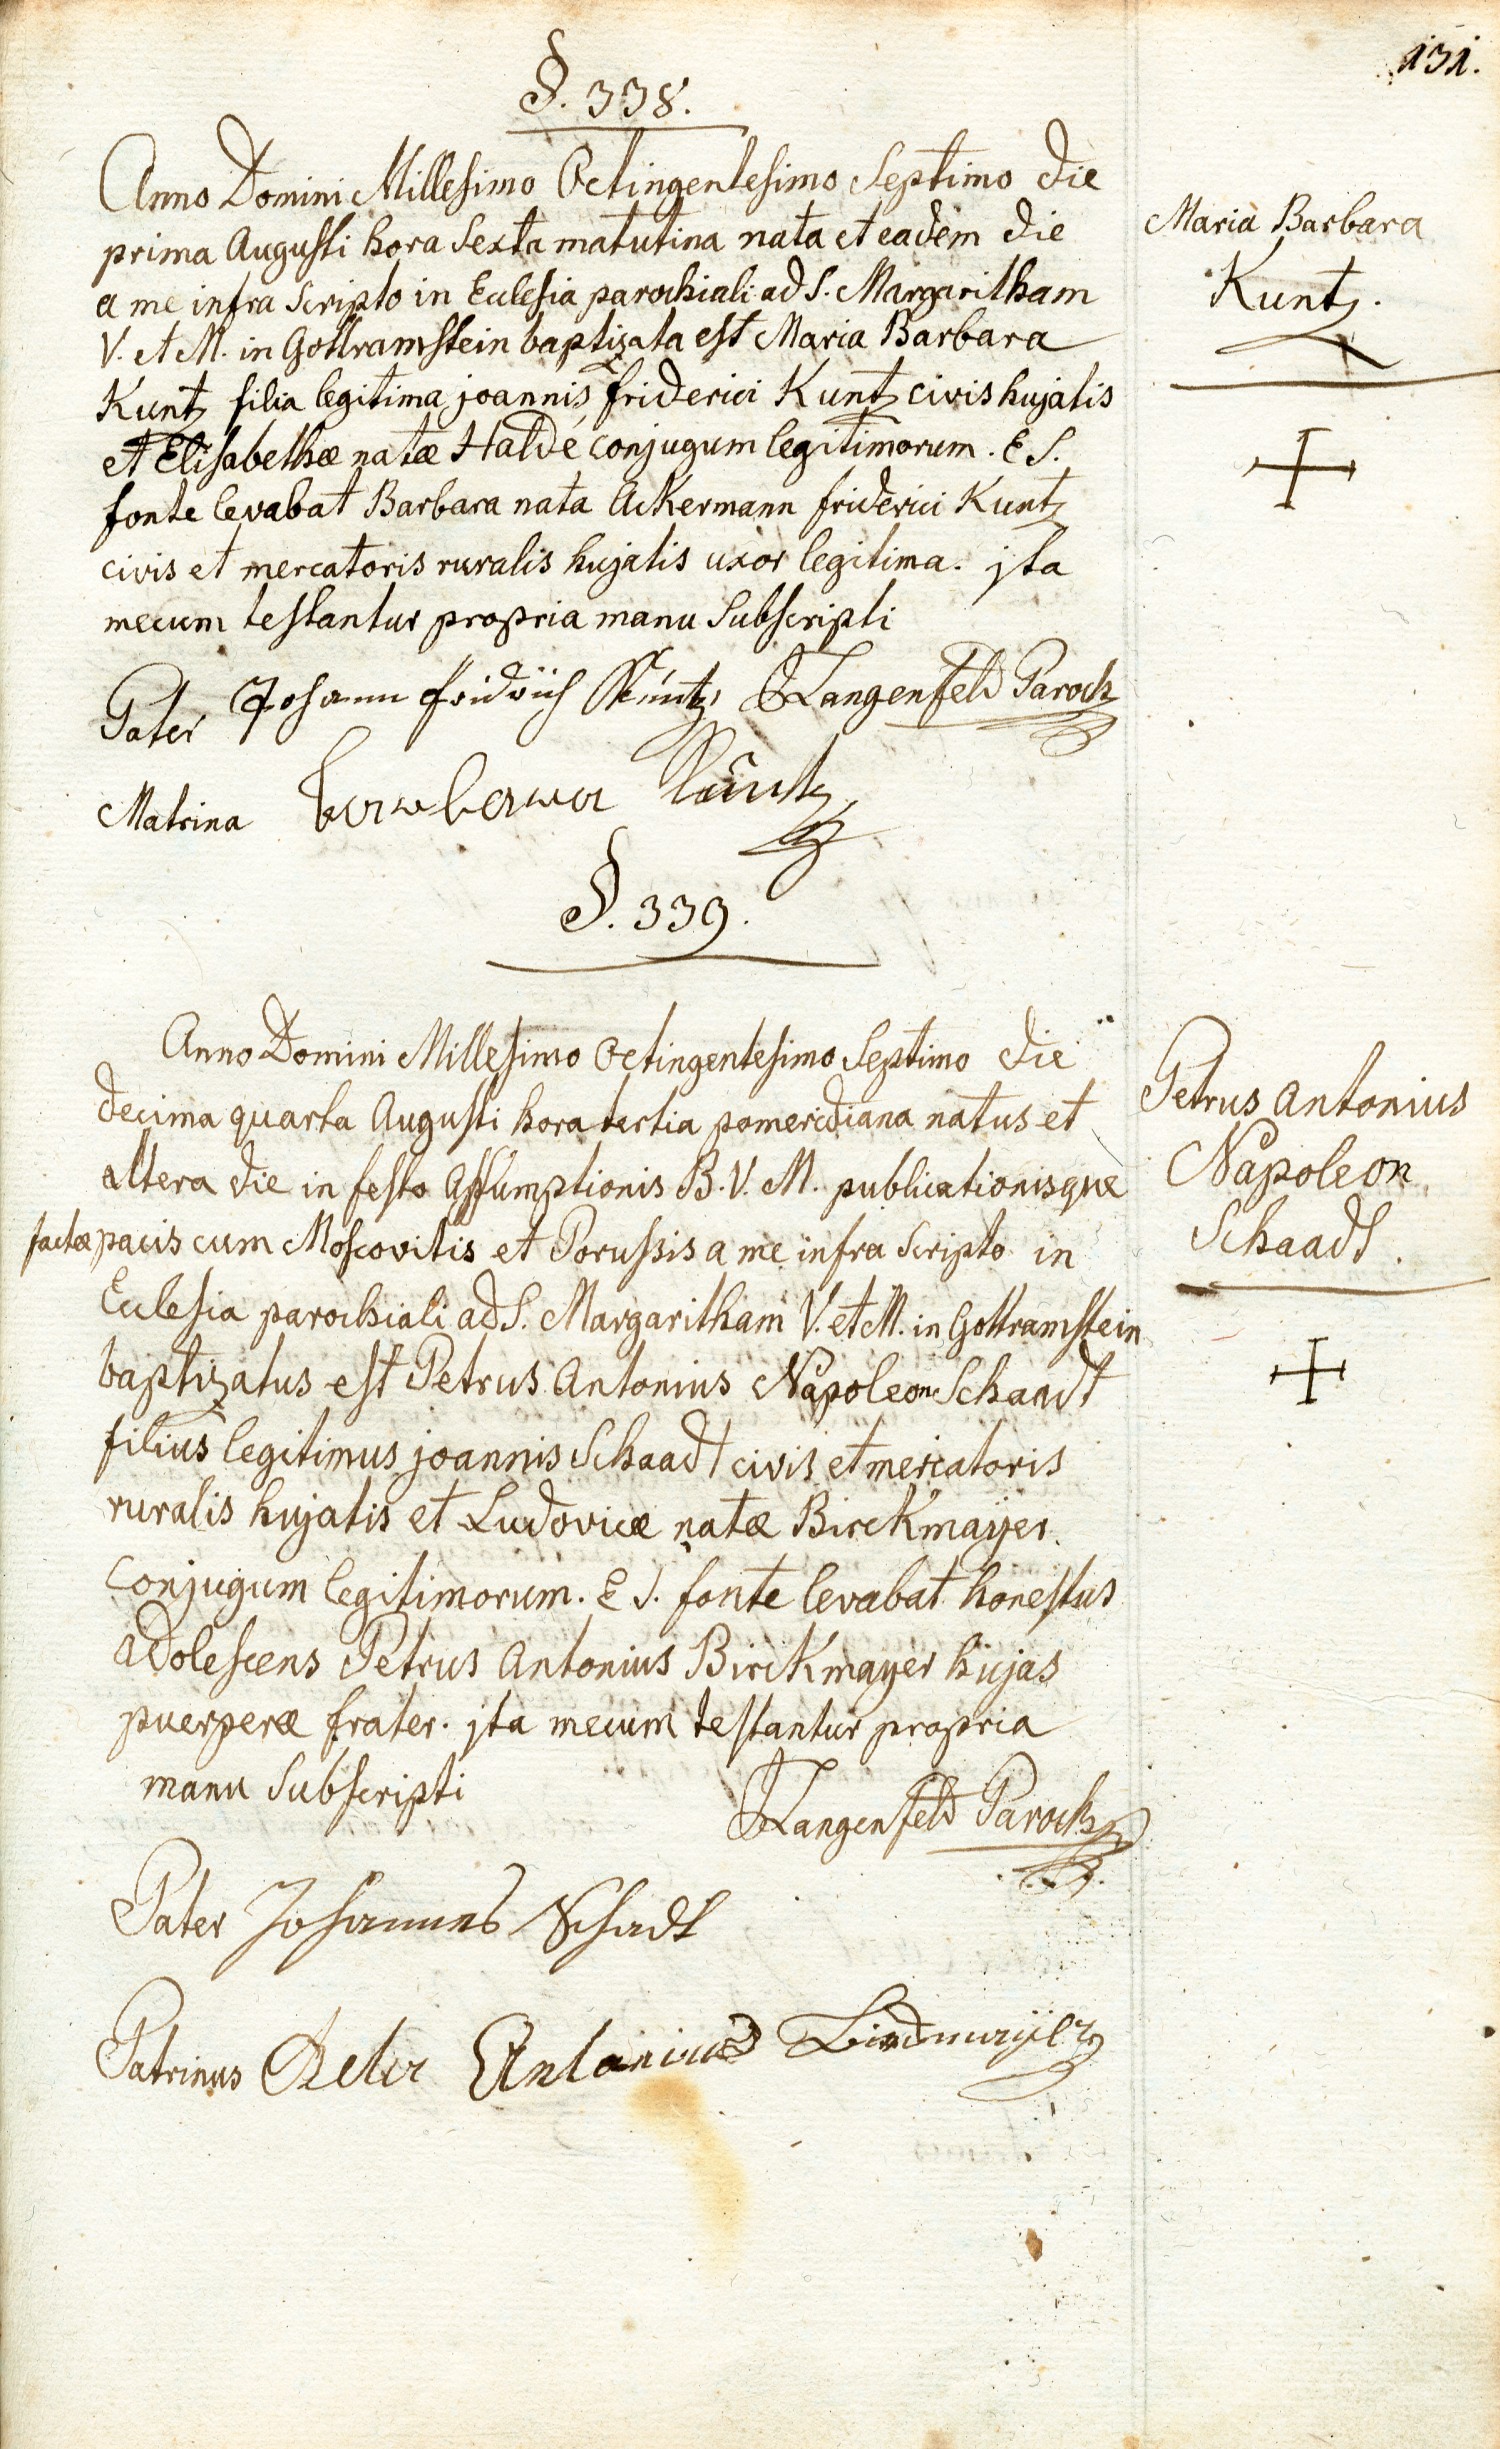 131.
§. 338.
Anno Domini Millesimo Octingentesimo Septimo die
prima Augusti hora Sexta matutina nata et eadem die
a me infra Scripto in Eclesia parochiali ad S. Margaritham
V. et M. in Gottramstein baptizata est Maria Barbara
Kuntz filia legitima joannis friderici Kuntz civis hujatis
et Elisabethæ natæ Haldé conjugum legitimorum. E S.
fonte levabat Barbara nata Ackermann friderici Kuntz
civis et mercatoris ruralis hujatis uxor legitima. jta
mecum testantur propria manu Subscripti
Pater Johann fridrich Kuntz Langenfeld Paroch
Matrina barbara Kuntz
Maria Barbara
Kuntz.
§. 339.
Anno Domini Millesimo Octingentesimo Septimo die
decima quarta Augusti hora tertia pomeridiana natus et
altera die in festo Assumptionis B. V. M. publicationisque
factæ pacis cum Moscovitis et Porussis a me infra Scripto in
Eclesia parochiali ad S. Margaritham V. et M. in Gottramstein
baptizatus est Petrus Antonius Napoleon Schaadt
filius legitimus joannis Schaadt civis et mercatoris
ruralis hujatis et Ludovicæ natæ Birckmaÿer.
Conjugum legitimorum. E S. fonte levabat honestus
adolescens Petrus Antonius Birckmayer hujas
puerperæ frater. jta mecum testantur propria
manu Subscripti
Langenfeld Paroch
Pater Johannes Schadt
Patrinus Peter Antonius
Petrus Antonius
Napoleon
Schaadt.